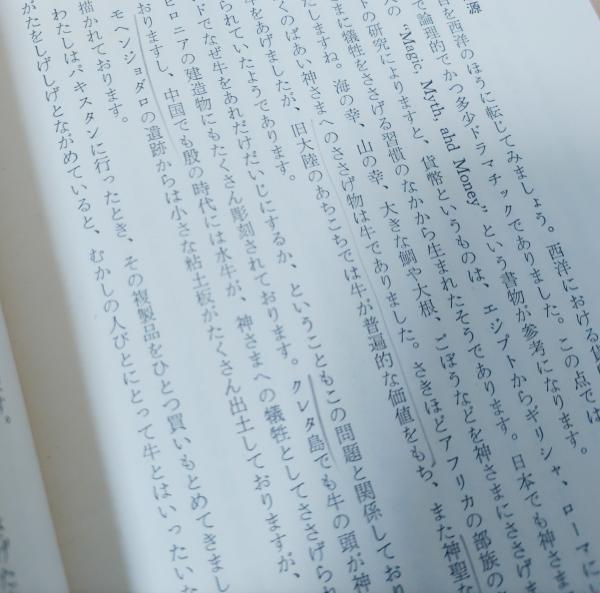 源
目を西洋のほうに転じてみましょう。西洋における貨
で論理的でかつ多少ドラマチックでありました。この点では
の “Magic, Myth and Money” という書物が参考になります。
トの研究によりますと、貨幣というものは、エジプトからギリシャ、ローマに
まに犠牲をささげる習慣のなかから生まれたそうであります。日本でも神さま
たしますね。海の幸、山の幸、大きな鯛や大根、ごぼうなどを神さまにささげま
くのばあい神さまへのささげ物は牛でありました。さきほどアフリカの部族の
牛をあげましたが、旧大陸のあちこちでは牛が普遍的な価値をもち、また神聖な
られていたようであります。
ドでなぜ牛をあれだけだいじにするか、ということもこの問題と関係しており
ビロニアの建造物にもたくさん彫刻されております。クレタ島でも牛の頭が神
おりますし、中国でも殷の時代には水牛が、神さまへの犠牲としてささげられ
モヘンジョダロの遺跡からは小さな粘土板がたくさん出土しておりますが、
描かれております。
わたしはパキスタンに行ったとき、その複製品をひとつ買いもとめてきまし
がたをしげしげとながめていると、むかしの人びとにとって牛とはいったいな
す。